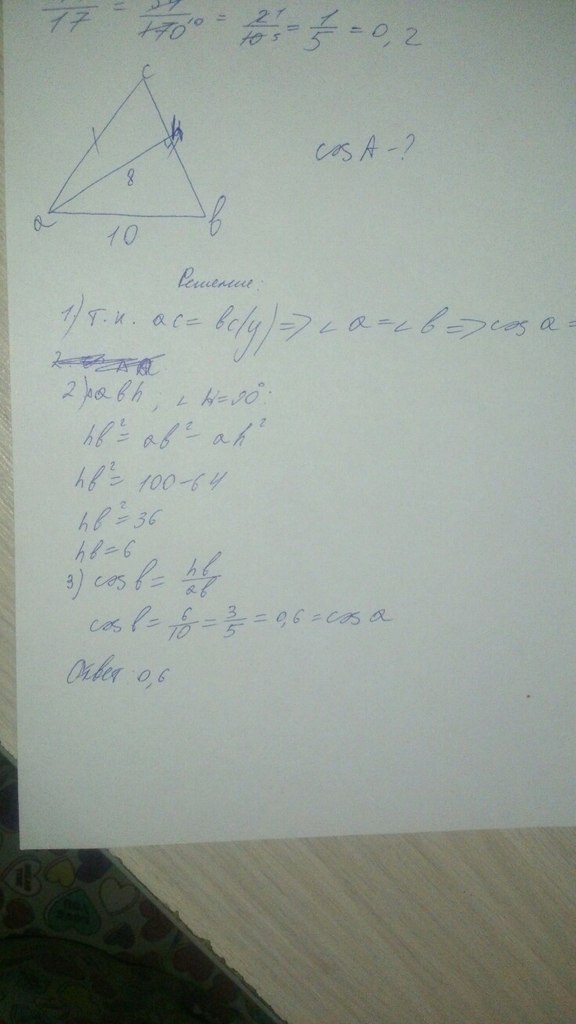 17 = 170 10 = 21 / 10 5 = 1/5 = 0,2
c
h
8
a
b
10
cos A - ?
Решение:
1) т.к. ac = bc (у) => ∠a = ∠b => cos a =
2) Δabh, ∠h = 90°:
hb² = ab² - ah²
hb² = 100 - 64
hb² = 36
hb = 6
3) cos b = hb/ab
cos b = 6/10 = 3/5 = 0,6 = cos a
Ответ: 0,6